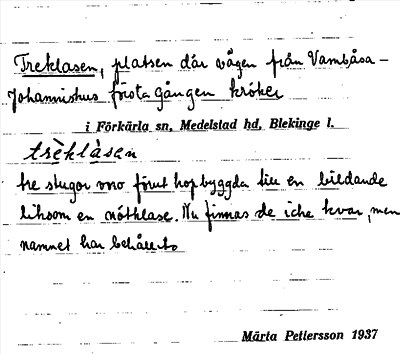 Treklasen, platsen där vägen från Vambåsa –
Johannishus första gången kröker
i Förkärla sn, Medelstad hd, Blekinge l.
trèklàsen
tre stugor voro förut hopbyggda till en bildande
liksom en nötklase. Nu finnas de icke kvar, men
namnet har behållits
Märta Pettersson 1937